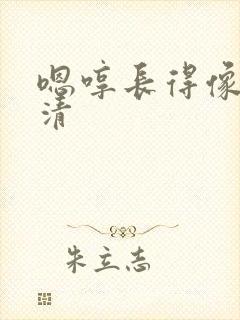 嗯哼長得像
清
朱立志